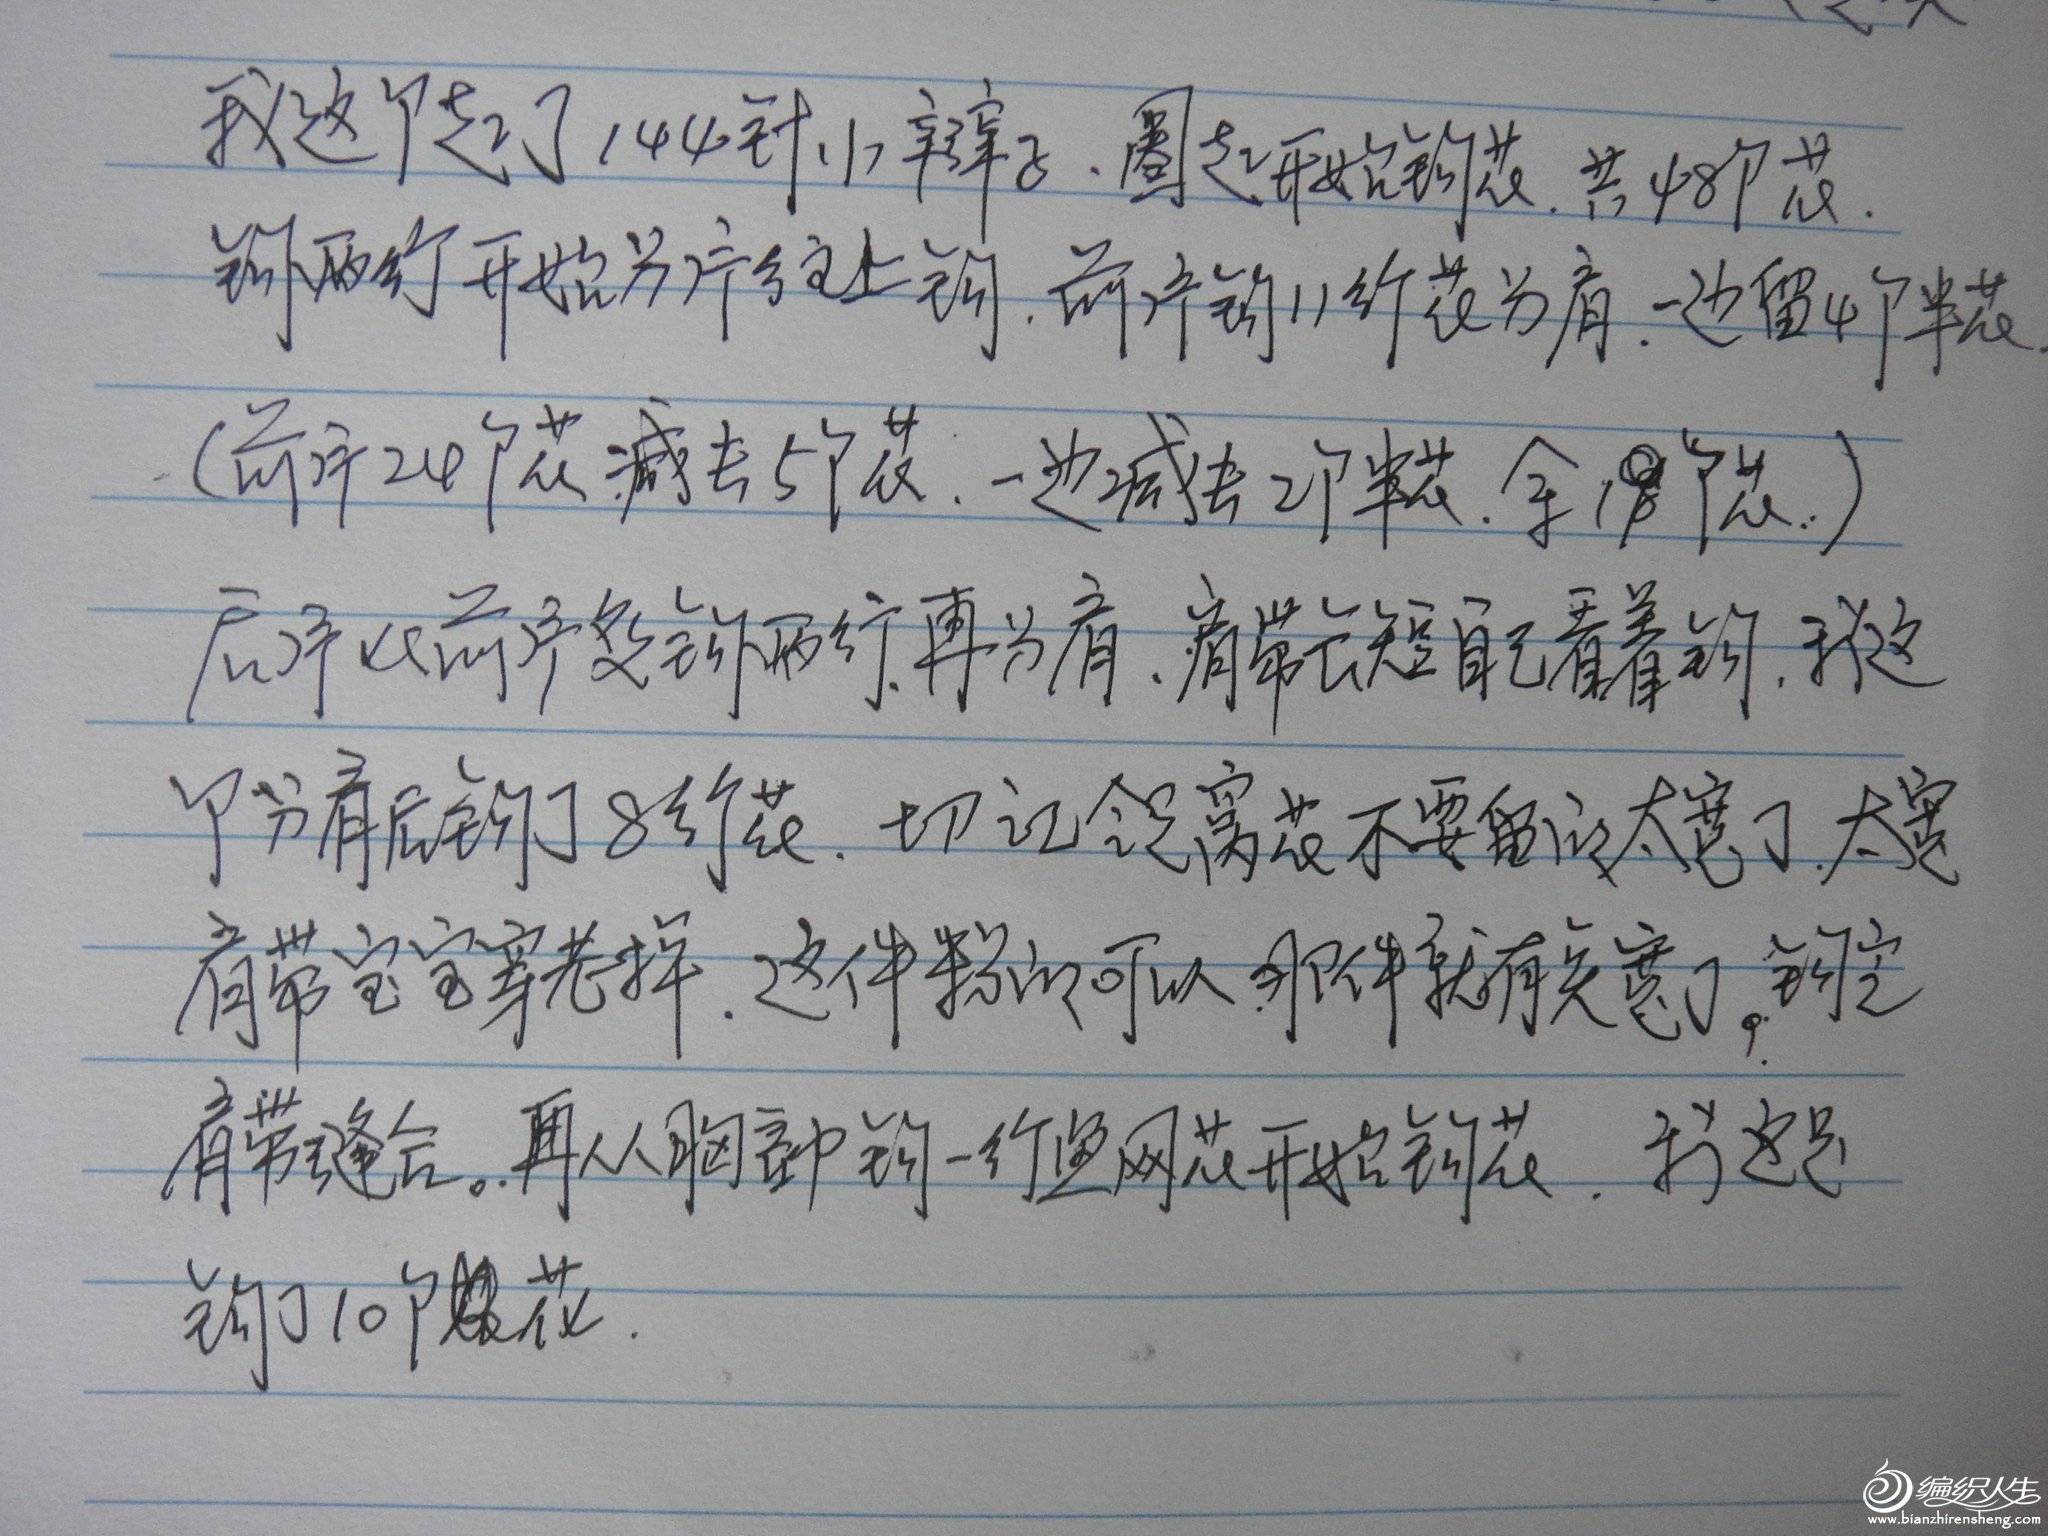 我这个起了144针小辫子.圈起开始钩花.共48个花.
钩两行开始分片往上钩.前片钩11行花分肩.一边留4个半花.
(前片24个花减去5个花.一边减去2个半花.余19个花.)
后片比前片多钩两行.再分肩.肩带长短自己看着钩.我这
个分肩后钩了8行花.切记领窝花不要留的太宽了.太宽
肩带宝宝穿老掉.这件粉的可以.那件就有点宽了。钩完
肩带缝合。再从胸部钩一行鱼网花开始钩花.我这是
钩了10个花.
编织人生
www.bianzhirensheng.com